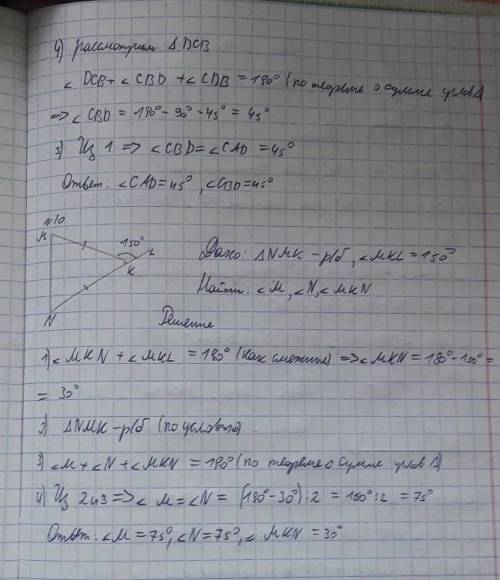 4) рассмотрим Δ DCB
∠ DCB + ∠ CBD + ∠ CDB = 180° (по теореме о сумме углов Δ
=> ∠ CBD = 180° - 90° - 45° = 45°
5) Из 1 => ∠ CBD = ∠ CAD = 45°
Ответ: ∠CAD = 45°, ∠CBD = 45°
N10
M
150°
L
K
N
Дано: ΔNMK - р/б, ∠MKL = 150°
Найти: ∠M, ∠N, ∠MKN
Решение
1) ∠MKN + ∠MKL = 180° (как смежные) => ∠MKN = 180° - 150° =
= 30°
2) ΔNMK - р/б (по условию)
3) ∠M + ∠N + ∠MKN = 180° (по теореме о сумме углов Δ)
4) Из 2 и 3 => ∠ M = ∠N = (180° - 30°) : 2 = 150° : 2 = 75°
Ответ: ∠M = 75°, ∠N = 75°, ∠ MKN = 30°